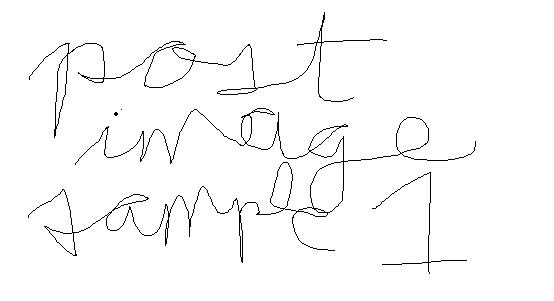 post
image
sample 1